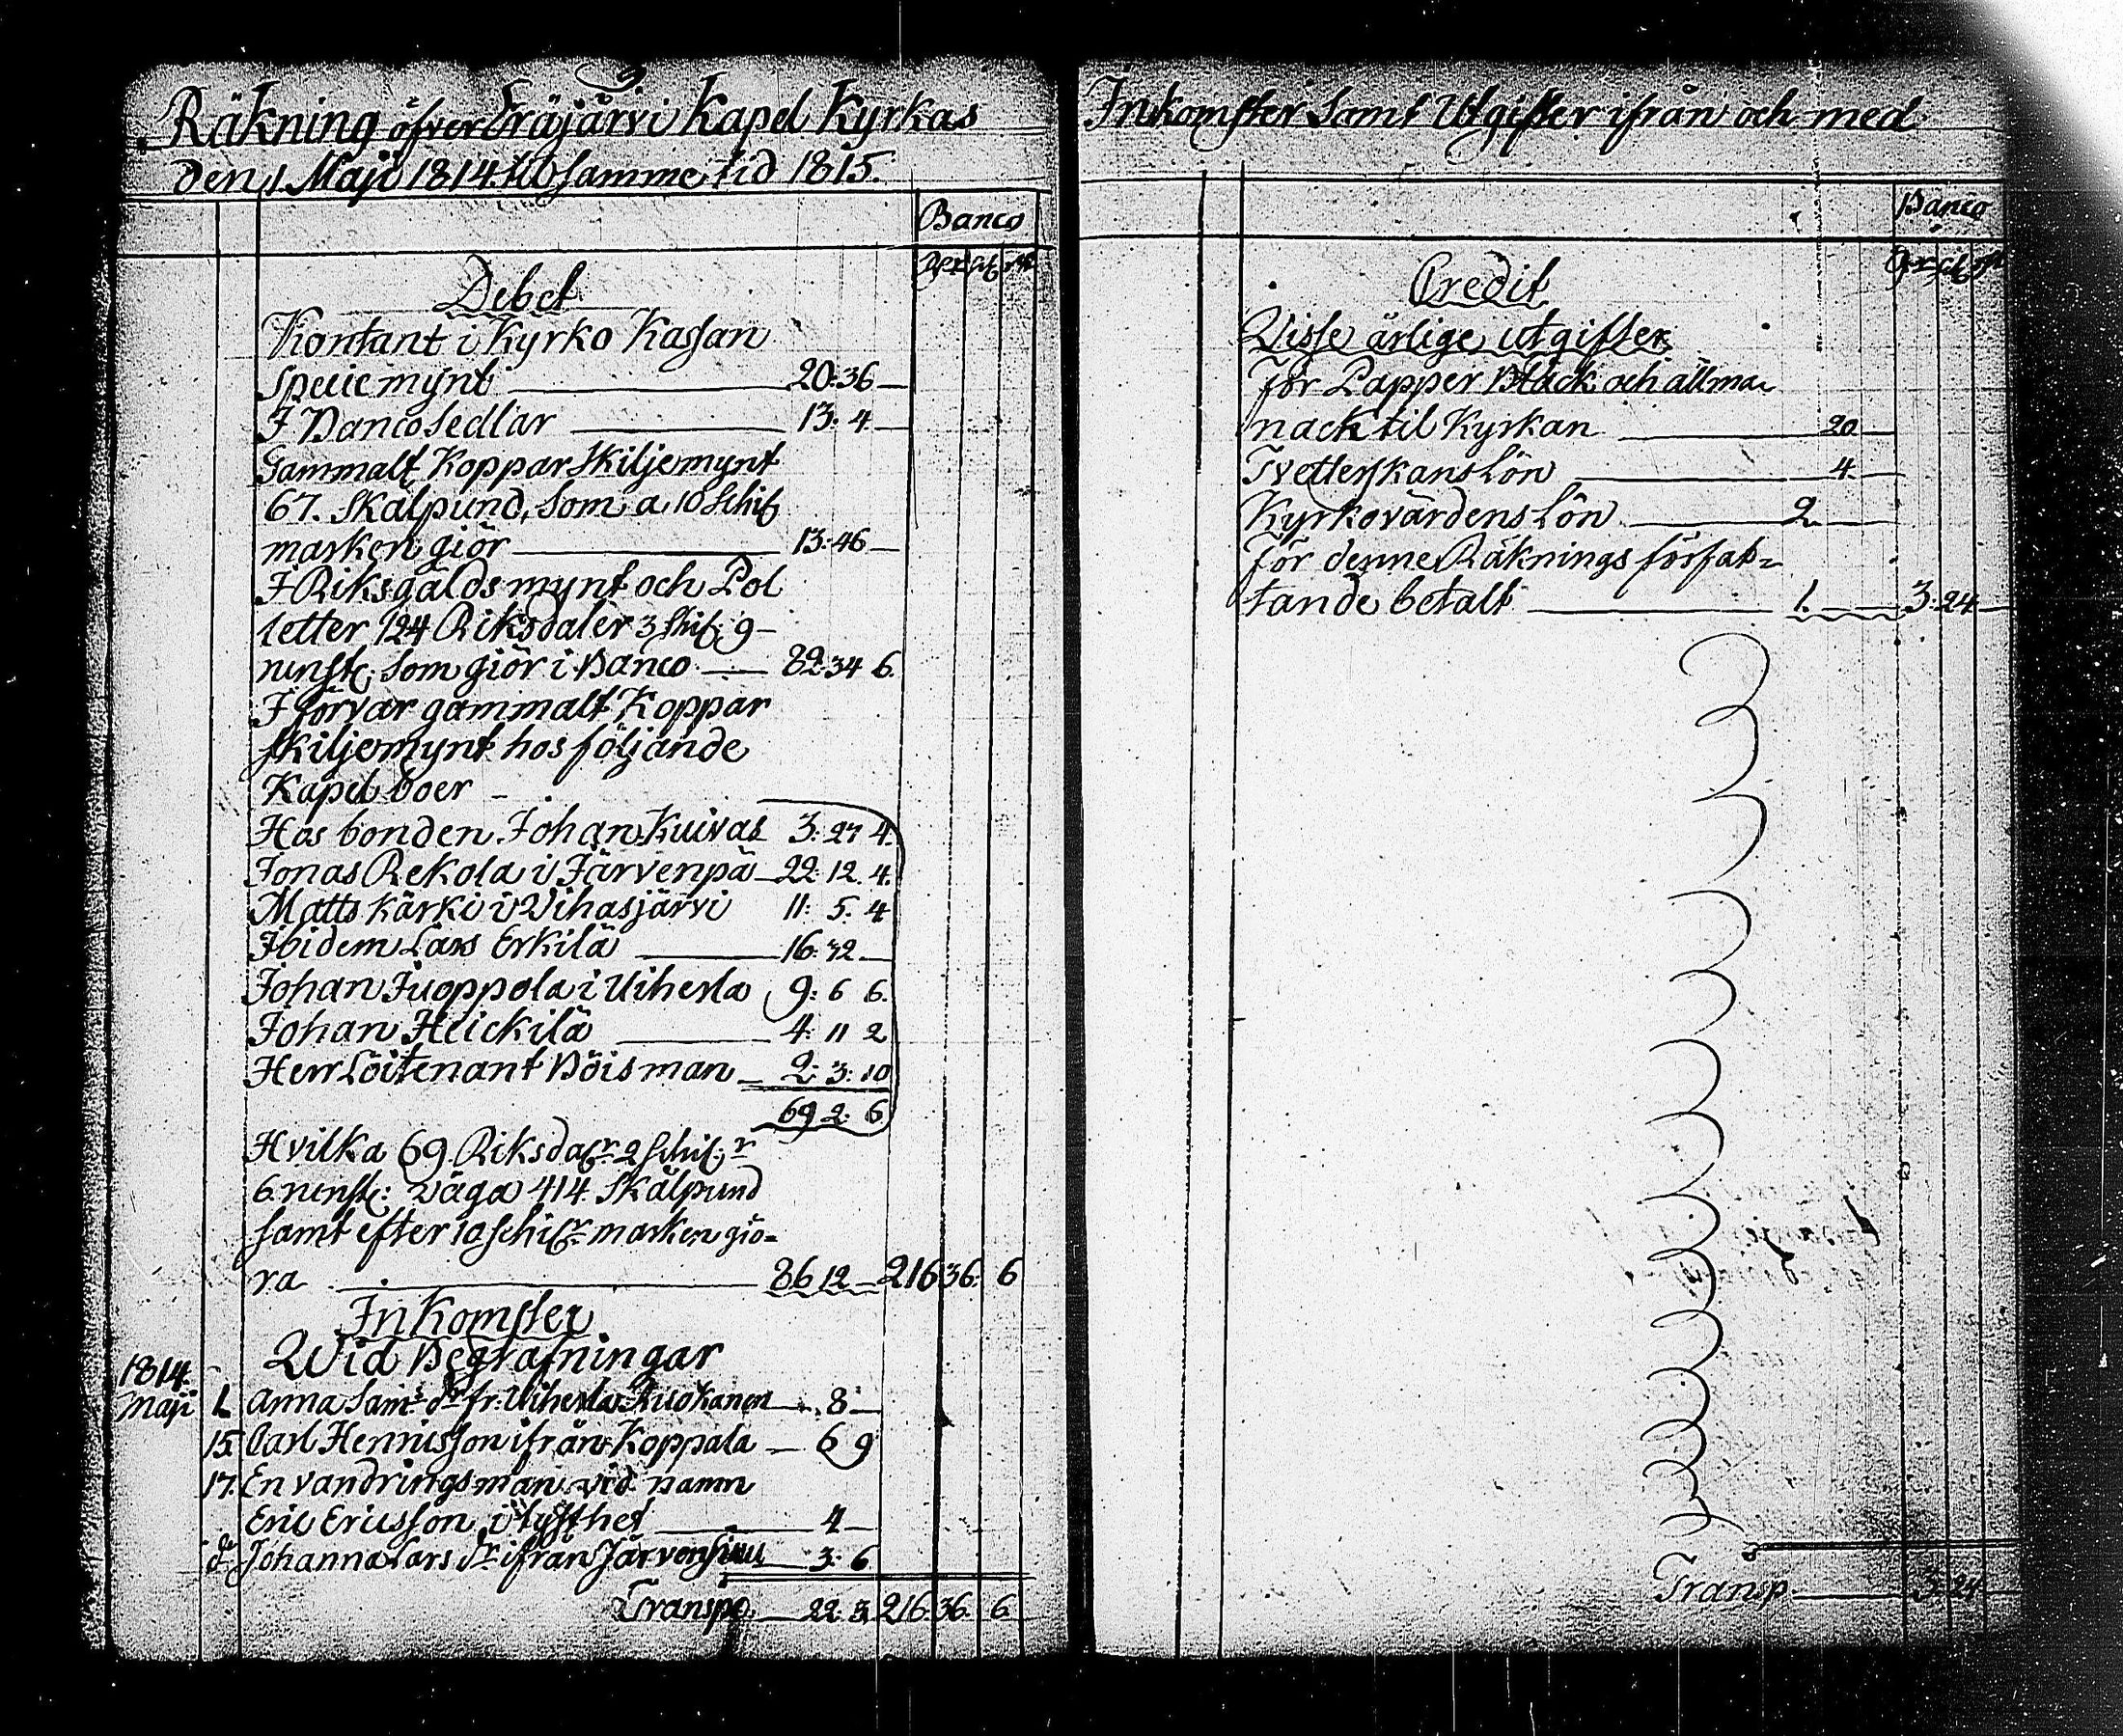 Räkning öfver Eräjärvi Kapel Kyrkas
den 1 Maji 1814 til samme tid 1815.
Banco
Debet
Kontant i Kyrko Kassan
Specie mynt 20:36
I Banco Sedlar 13:4
Gammalt Koppar Skiljemynt
67. Skålpund, som a 10 Schil
marken giör 13:46
I Riksgälds mynt och Pol
letter 124 Riksdaler 3 skil: 9
runst: som giör i Banco 82:34 6.
I förvar gammalt Koppar
skiljemynt hos följande
Kapel boer
Hos bonden Johan Kuivas 3:27 4.
Jonas Rekola i Järvenpä 22:12.4.
Matts Kärki i Vihasjärvi 11:5.4
Ibidem Lars Erkilä 16:32
Johan Juoppola i Uiherla 9:6 6.
Johan Heickilä 4:11 2
Herr Löitenant Böisman 2:3:10
69 2. 6
Hvilka 69 Riksdalr 2 schil:r
6 runst: väga 414 Skålpund
samt efter 10 schilr marken giö-
ra 86 12 216 36. 6
Inkomster
Wid Begrafningar
1814.
Maji 1. Anna Sams dr fr: Uiherla Ruokanen 8
15 Carl Henricsson ifrån Koppala 6 9
17. En vandringsman vid namn
Eric Ericsson i tysthet 4
do Johanna Lars dr ifrån Järvensuu 3:6
Transp. 22:3 216 36. 6
Inkomster samt Utgifter ifrån och med
Banco
Credit
Visse årlige utgifter
För Papper Bläck och allma-
nack til Kyrkan 20
Tvetterskans Lön 4
Kyrkovärdens Lön 2
För denne Räknings förfat-
tande betalt 1. 3:24
Transp 3:24